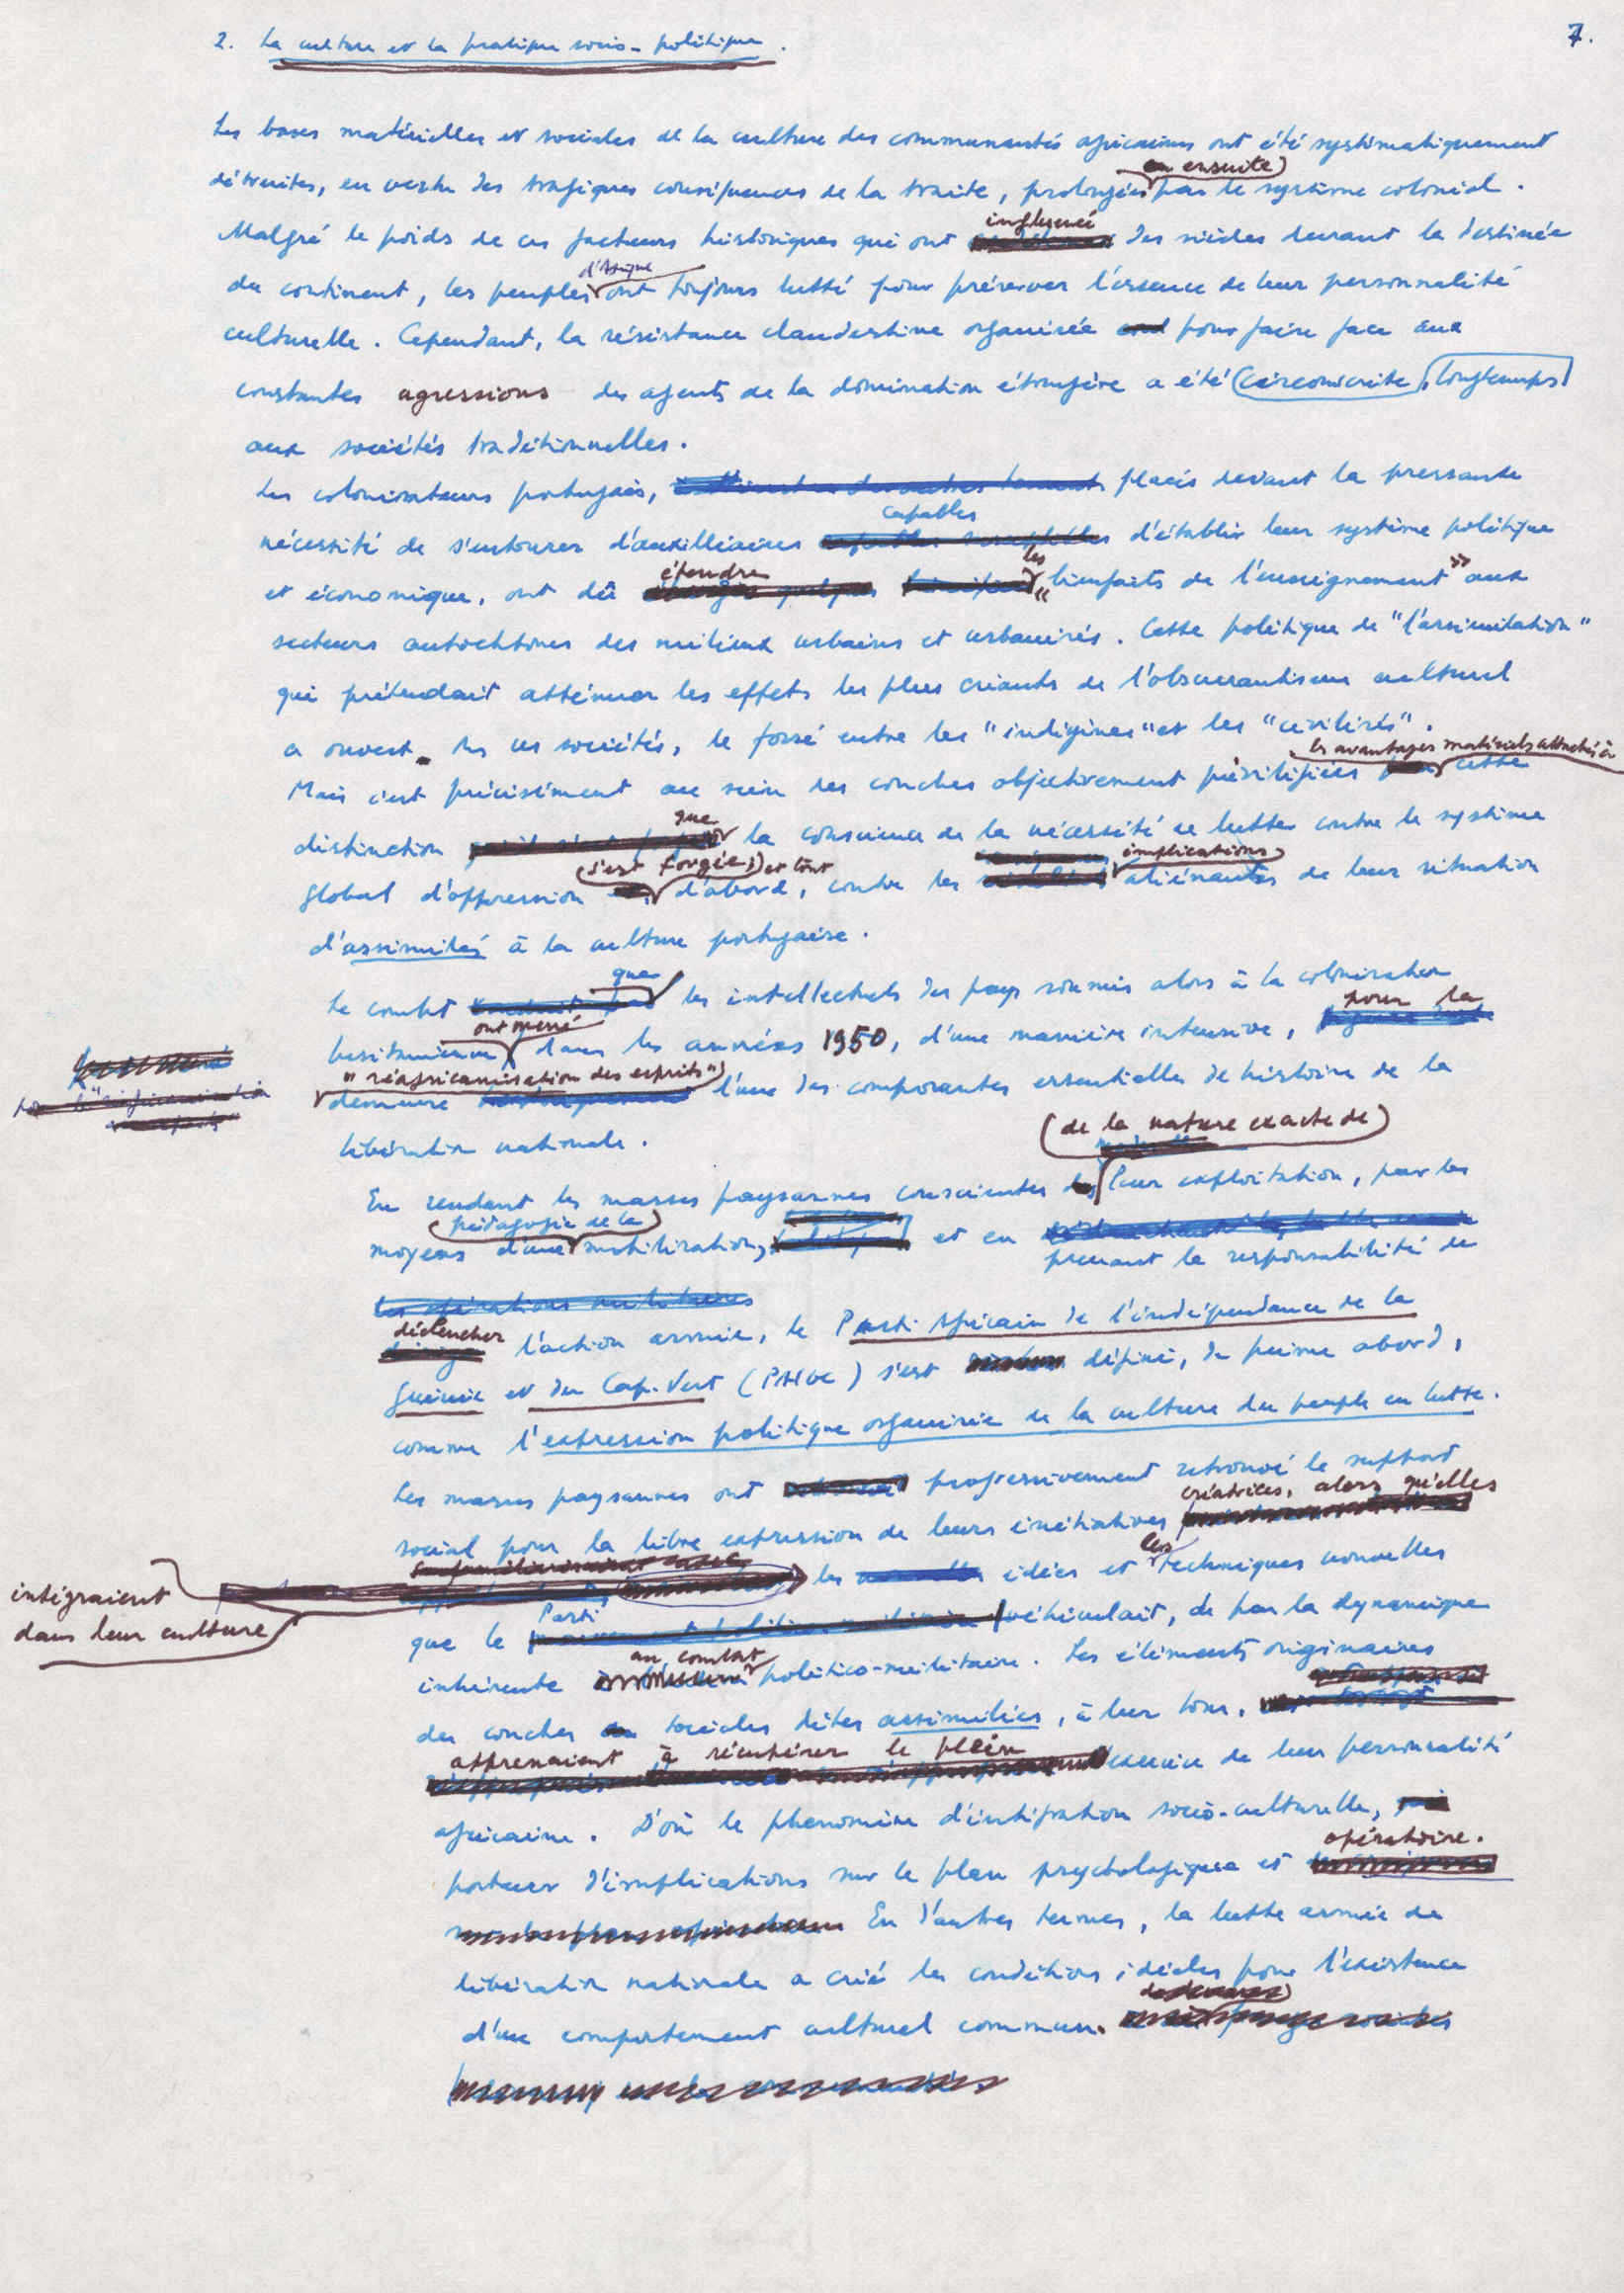 7.
2. La culture et la pratique socio-politique.
Les bases matérielles et sociales de la culture des communautés africaines ont été systématiquement
en ensuite
détruites, en vertu des tragiques conséquences de la traite, prolongées par le système colonial.
influencé
Malgré le poids de ces facteurs historiques qui ont des siècles durant la destinée
d'Afrique
du continent, les peuples ont toujours lutté pour préserver l'essence de leur personnalité
culturelle. Cependant, la résistance clandestine organisée pour faire face aux
constantes agressions des agents de la domination étrangère a été circonscrite, longtemps
aux sociétés traditionnelles.
Les colonisateurs portugais, placés devant la pressante
capables
nécessité de s'entourer d'auxilliaires d'établir leur système politique
étendre les
et économique, ont dû "bienfaits de l'enseignement" aux
secteurs autochtones des milieux urbains et urbanisés. Cette politique de "l'assimilation"
qui prétendait atténuer les effets les plus criants de l'obscurantisme culturel
a ouvert ces sociétés, le fossé entre les "indigènes" et les "civilisés".
les avantages matériels attachés à
Mais c'est précisément au sein des couches objectivement privilégiées cette
que
distinction la conscience de la nécessité de lutter contre le système
s'est forgée, et tout implications
global d'oppression d'abord, contre les aliénantes de leur situation
d'assimilés à la culture portugaise.
que
Le combat les intellectuels des pays soumis alors à la colonisation
ont mené pour la
lusitanienne dans les années 1950, d'une manière intensive,
"réafricanisation des esprits"
demeure l'une des composantes essentielles de histoire de la
libération nationale.
(de la nature exacte de)
En rendant les masses paysannes conscientes leur exploitation, par les
pédagogie de la
moyens d'une mobilisation, et en
prenant la responsabilité de
les opérations militaires
déclencher l'action armée, le Parti Africain de l'indépendance de la
Guinée et du Cap-Vert (PAIGC) s'est défini, de prime abord,
comme l'expression politique organisée de la culture du peuple en lutte.
Les masses paysannes ont progressivement retrouvé le support
créatrices, alors qu'elles
social pour la libre expression de leurs initiatives
intégraient
dans leur culture
les idées et les techniques nouvelles
Parti
que le véhiculait, de par la dynamique
au combat
inhérente politico-militaire. Les éléments originaires
des couches sociales dites assimilées, à leur tour,
apprenaient à récupérer le plein
exercice de leur personnalité
africaine. D'où le phénomène d'intégration socio-culturelle,
opératoire.
porteur d'implications sur le plan psychologique et
En d'autres termes, la lutte armée de
libération nationale a créé les conditions idéales pour l'existence
d'un comportement culturel commun.